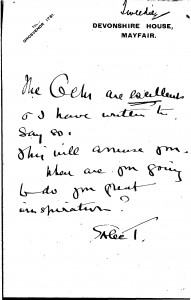 Tuesday
TEL.
GROSVENOR 1791.
DEVONSHIRE HOUSE,
MAYFAIR.
The are excellent
& I have written to
say so.
This will amuse you.
When are you going
to do your great
inspiration?